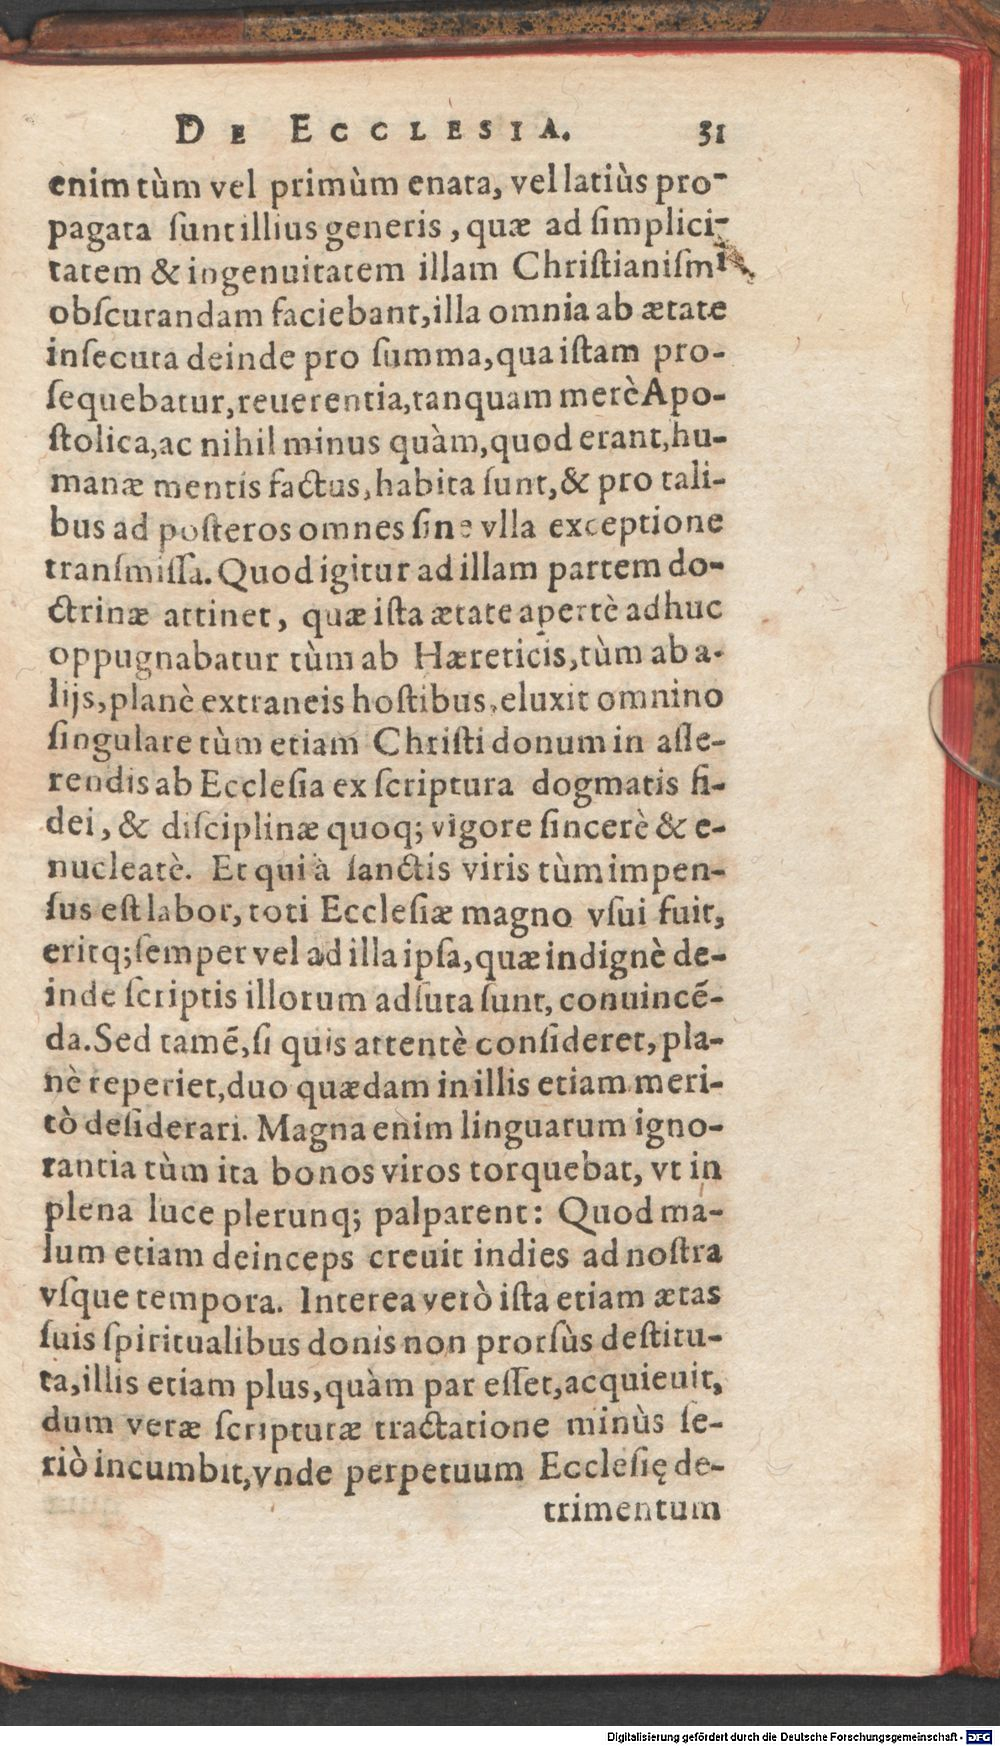 DE ECCLESIA. 31
enim tùm vel primùm enata, vel latiùs pro-
pagata ſunt illius generis, quæ ad ſimplici-
tatem & ingenuitatem illam Chriſtianiſmi
obſcurandam faciebant, illa omnia ab ætate
inſecuta deinde pro ſumma, qua iſtam pro-
ſequebatur, reuerentia, tanquam merè Apo-
ſtolica, ac nihil minus quàm, quod erant, hu-
manæ mentis factus, habita ſunt, & pro tali-
bus ad poſteros omnes ſine vlla exceptione
tranſmiſſa. Quod igitur ad illam partem do-
ctrinæ attinet, quæ iſta ætate apertè adhuc
oppugnabatur tùm ab Hæreticis, tùm ab a-
lijs, planè extraneis hoſtibus, eluxit omnino
ſingulare tùm etiam Chriſti donum in aſſe-
rendis ab Eccleſia ex ſcriptura dogmatis fi-
dei, & diſciplinæ quoq; vigore ſincerè & e-
nucleatè. Et qui à ſanctis viris tùm impen-
ſus eſt labor, toti Eccleſiæ magno vſui fuit,
eritq; ſemper vel ad illa ipſa, quæ indignè de-
inde ſcriptis illorum adſuta ſunt, conuincē-
da. Sed tamē, ſi quis attentè conſideret, pla-
nè reperiet, duo quædam in illis etiam meri-
tò deſiderari. Magna enim linguarum igno-
rantia tùm ita bonos viros torquebat, vt in
plena luce plerunq; palparent: Quod ma-
lum etiam deinceps creuit indies ad noſtra
vſque tempora. Interea verò iſta etiam ætas
ſuis ſpiritualibus donis non prorſùs deſtitu-
ta, illis etiam plus, quàm par eſſet, acquieuit,
dum veræ ſcripturæ tractatione minùs ſe-
riò incumbit, vnde perpetuum Eccleſię de-
trimentum
Digitalisierung gefördert durch die Deutsche Forschungsgemeinschaft - DFG